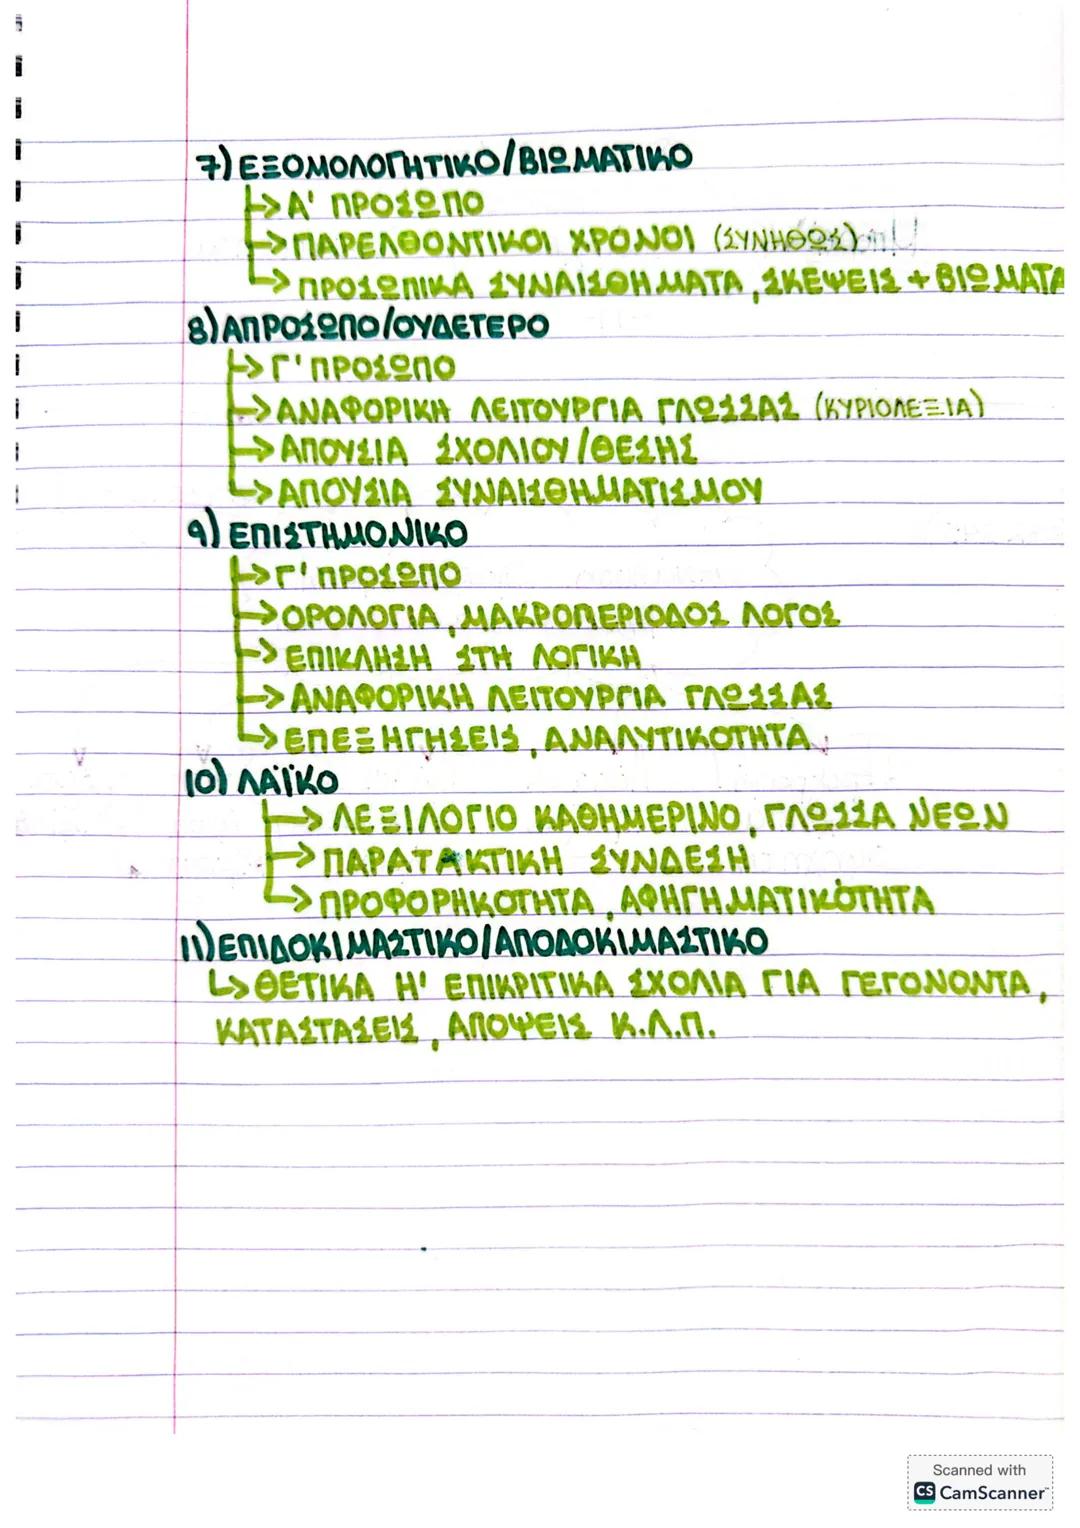 7) ΕΞΟΜΟΛΟΓΗΤΙΚΟ/ΒΙΩΜΑΤΙΚΟ
→ Α' ΠΡΟΣΩΠΟ
→ ΠΑΡΕΛΘΟΝΤΙΚΟΙ ΧΡΟΝΟΙ (ΣΥΝΗΘΩΣ)
→ ΠΡΟΣΩΠΙΚΑ ΣΥΝΑΙΣΘΗΜΑΤΑ, ΣΚΕΨΕΙΣ + ΒΙΩΜΑΤΑ
8) ΑΠΡΟΣΩΠΟ/ΟΥΔΕΤΕΡΟ
→ Γ' ΠΡΟΣΩΠΟ
→ ΑΝΑΦΟΡΙΚΗ ΛΕΙΤΟΥΡΓΙΑ ΓΛΩΣΣΑΣ (ΚΥΡΙΟΛΕΞΙΑ)
→ ΑΠΟΥΣΙΑ ΣΧΟΛΙΟΥ/ΘΕΣΗΣ
→ ΑΠΟΥΣΙΑ ΣΥΝΑΙΣΘΗΜΑΤΙΣΜΟΥ
9) ΕΠΙΣΤΗΜΟΝΙΚΟ
→ Γ' ΠΡΟΣΩΠΟ
→ ΟΡΟΛΟΓΙΑ, ΜΑΚΡΟΠΕΡΙΟΔΟΣ ΛΟΓΟΣ
→ ΕΠΙΚΛΗΣΗ ΣΤΗ ΛΟΓΙΚΗ
→ ΑΝΑΦΟΡΙΚΗ ΛΕΙΤΟΥΡΓΙΑ ΓΛΩΣΣΑΣ
→ ΕΠΕΞΗΓΗΣΕΙΣ, ΑΝΑΛΥΤΙΚΟΤΗΤΑ
10) ΛΑΪΚΟ
→ ΛΕΞΙΛΟΓΙΟ ΚΑΘΗΜΕΡΙΝΟ, ΓΛΩΣΣΑ ΝΕΩΝ
→ ΠΑΡΑΤΑΚΤΙΚΗ ΣΥΝΔΕΣΗ
→ ΠΡΟΦΟΡΗΚΟΤΗΤΑ, ΑΦΗΓΗΜΑΤΙΚΟΤΗΤΑ
11) ΕΠΙΔΟΚΙΜΑΣΤΙΚΟ/ΑΠΟΔΟΚΙΜΑΣΤΙΚΟ
↳ ΘΕΤΙΚΑ Η' ΕΠΙΚΡΙΤΙΚΑ ΣΧΟΛΙΑ ΓΙΑ ΓΕΓΟΝΟΝΤΑ,
ΚΑΤΑΣΤΑΣΕΙΣ, ΑΠΟΨΕΙΣ Κ.Λ.Π.
Scanned with
CS CamScanner